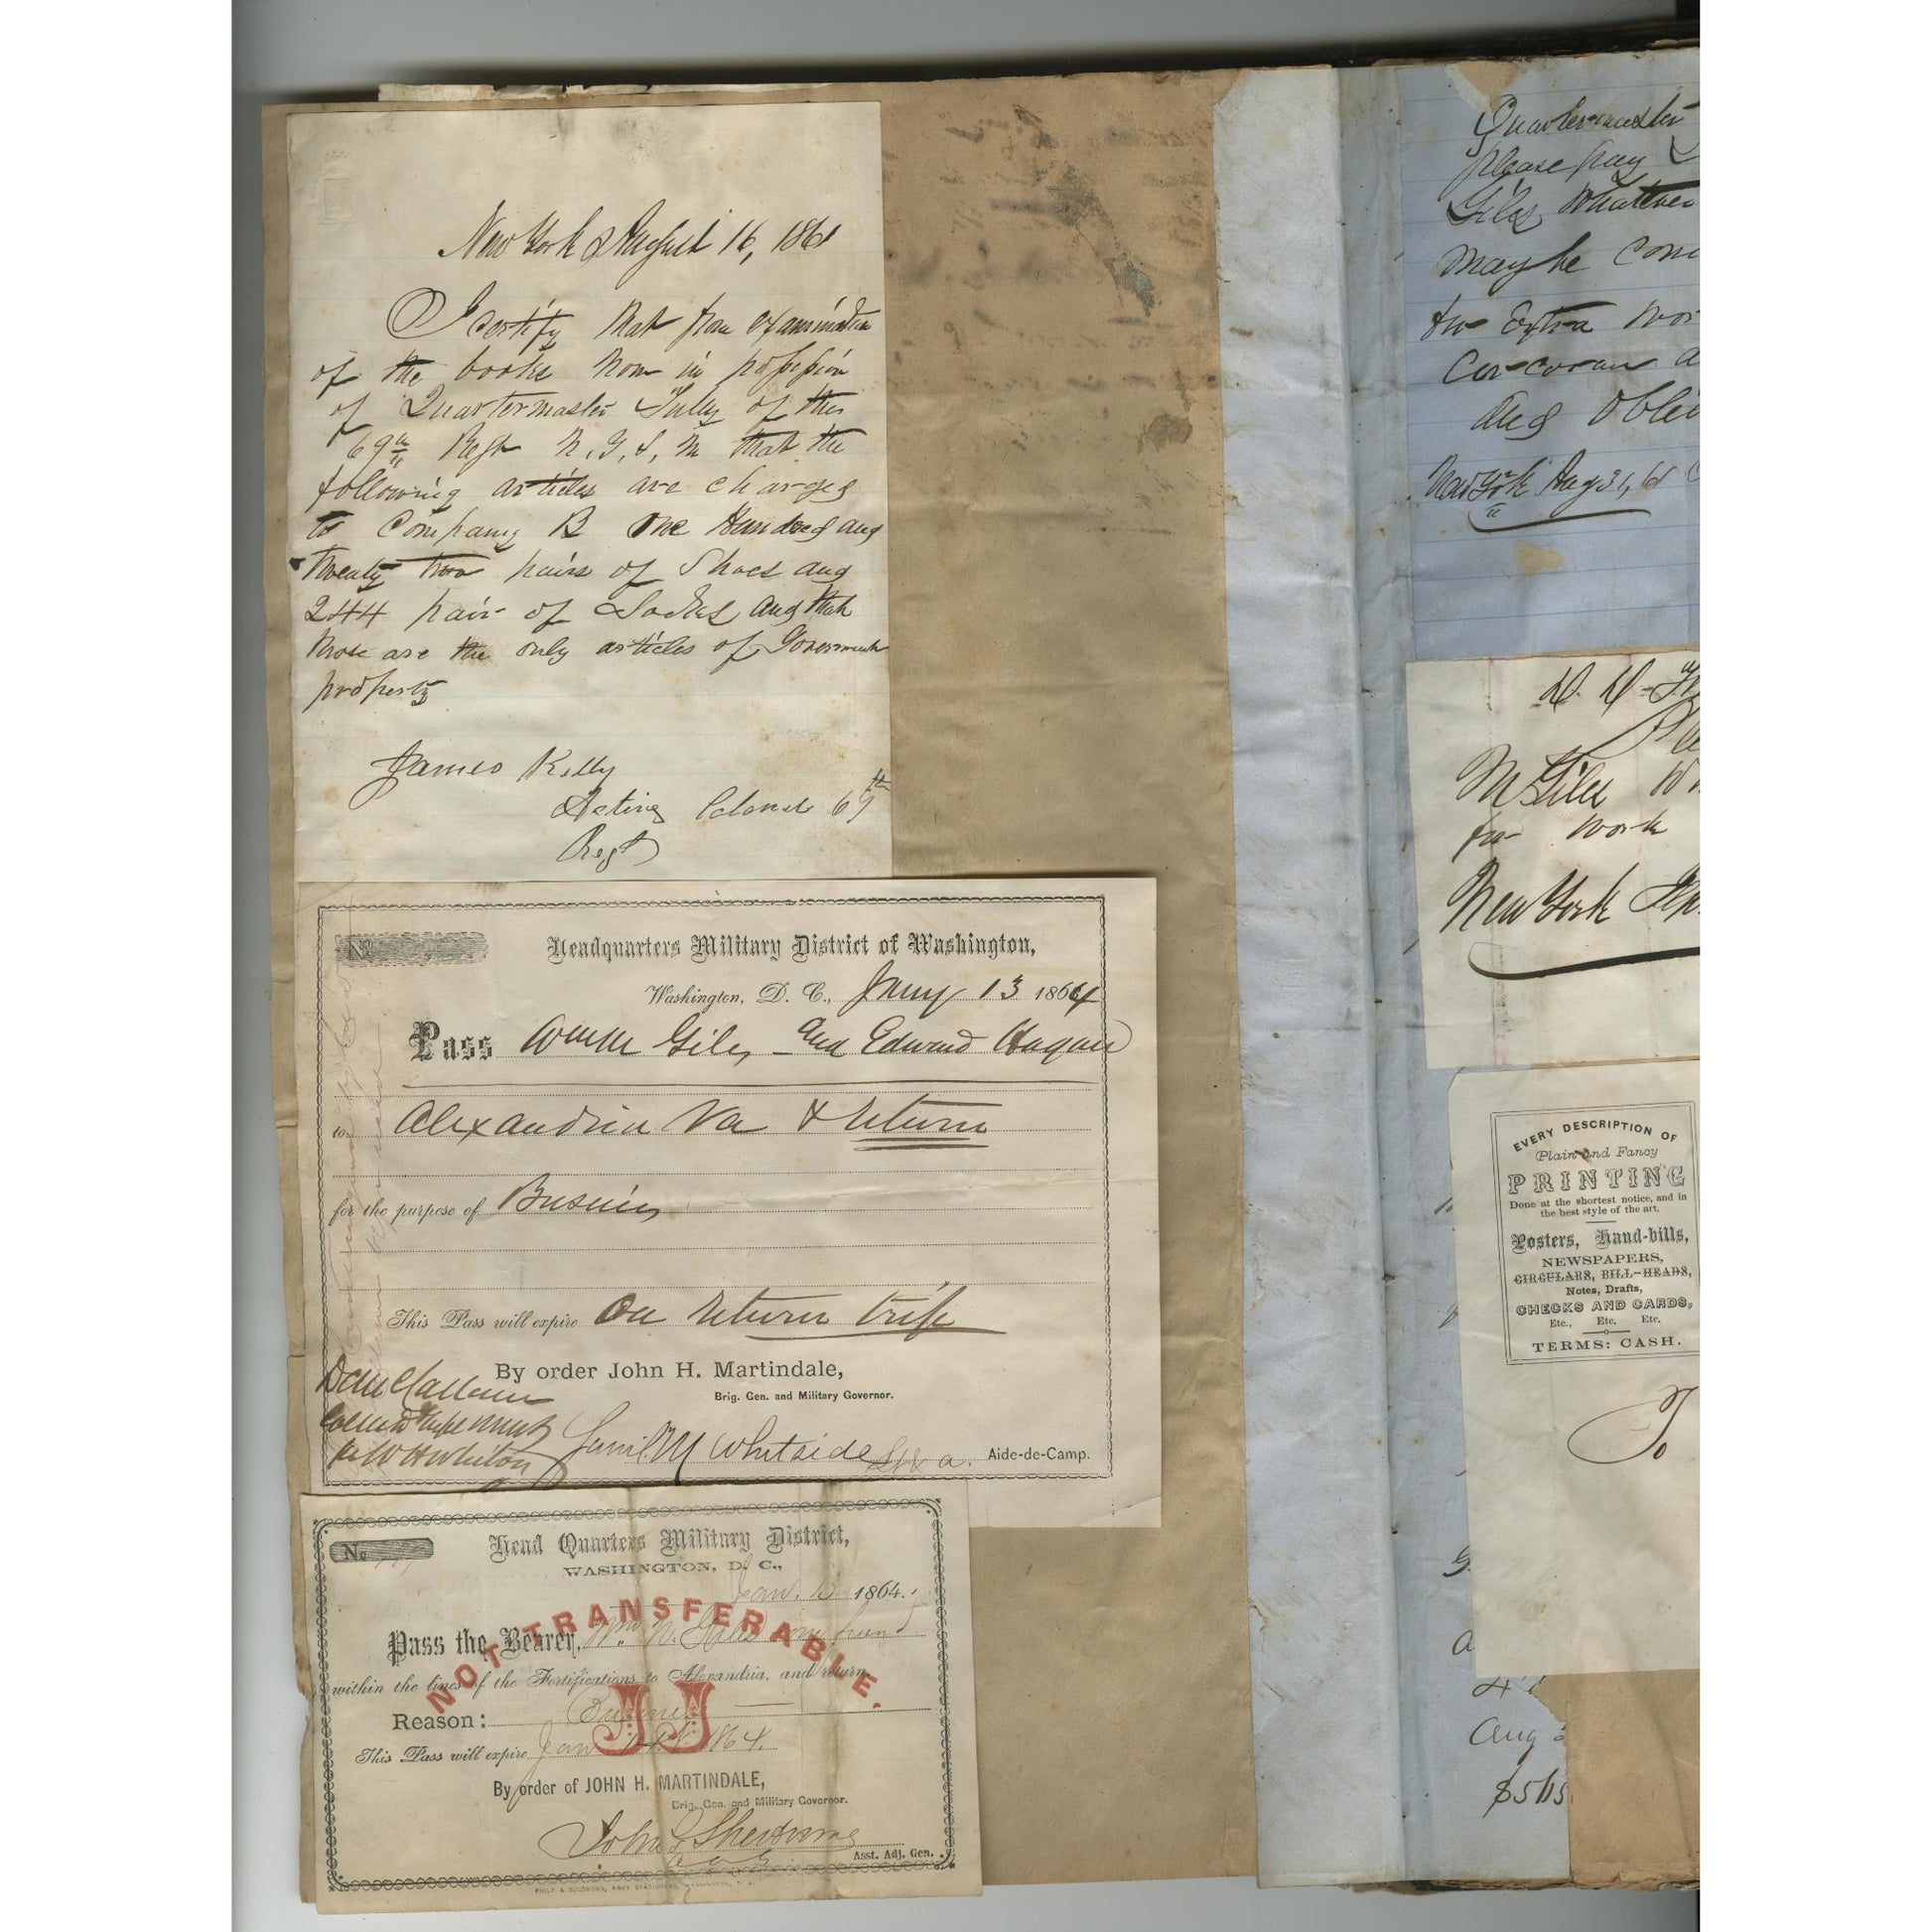 New York August 16, 1861
I certify that from examination
of the books now in possession
of Quartermaster Tully of the
69th Regt N.G.S.N that the
following articles are charged
to Company B One Hundred and
twenty two pairs of Shoes and
244 pair of Socks and that
those are the only articles of Government
property
James Kelly
Acting Colonel 69th
Regt
No.
Headquarters Military District of Washington,
Washington, D. C., Jany 13 1864
Pass Giles and Edward Hagan
to Alexandria Va & return
for the purpose of Business
This Pass will expire On return trip
By order John H. Martindale,
Brig. Gen. and Military Governor.
Saml. M Whitside
Aide-de-Camp.
No
Head Quarters Military District,
WASHINGTON, D. C.,
Jan. 1864.
NOT TRANSFERABLE.
Pass the Bearer,
within the lines of the Fortifications to Alexandria, and return
Reason: Business
JJ
This Pass will expire Jan 1864.
By order of JOHN H. MARTINDALE,
Brig. Gen. and Military Governor.
John
Asst. Adj. Gen.
Quartermaster
please pay
Giles Whatever
may be
for Extra
Corcoran
and
New York Aug 31, 61
M Giles
for work
New York
EVERY DESCRIPTION OF
Plain and Fancy
PRINTING
Done at the shortest notice, and in
the best style of the art.
Posters, Hand-bills,
NEWSPAPERS,
CIRCULARS, BILL-HEADS,
Notes, Drafts,
CHECKS AND CARDS,
Etc., Etc. Etc.
TERMS: CASH.
To
Aug